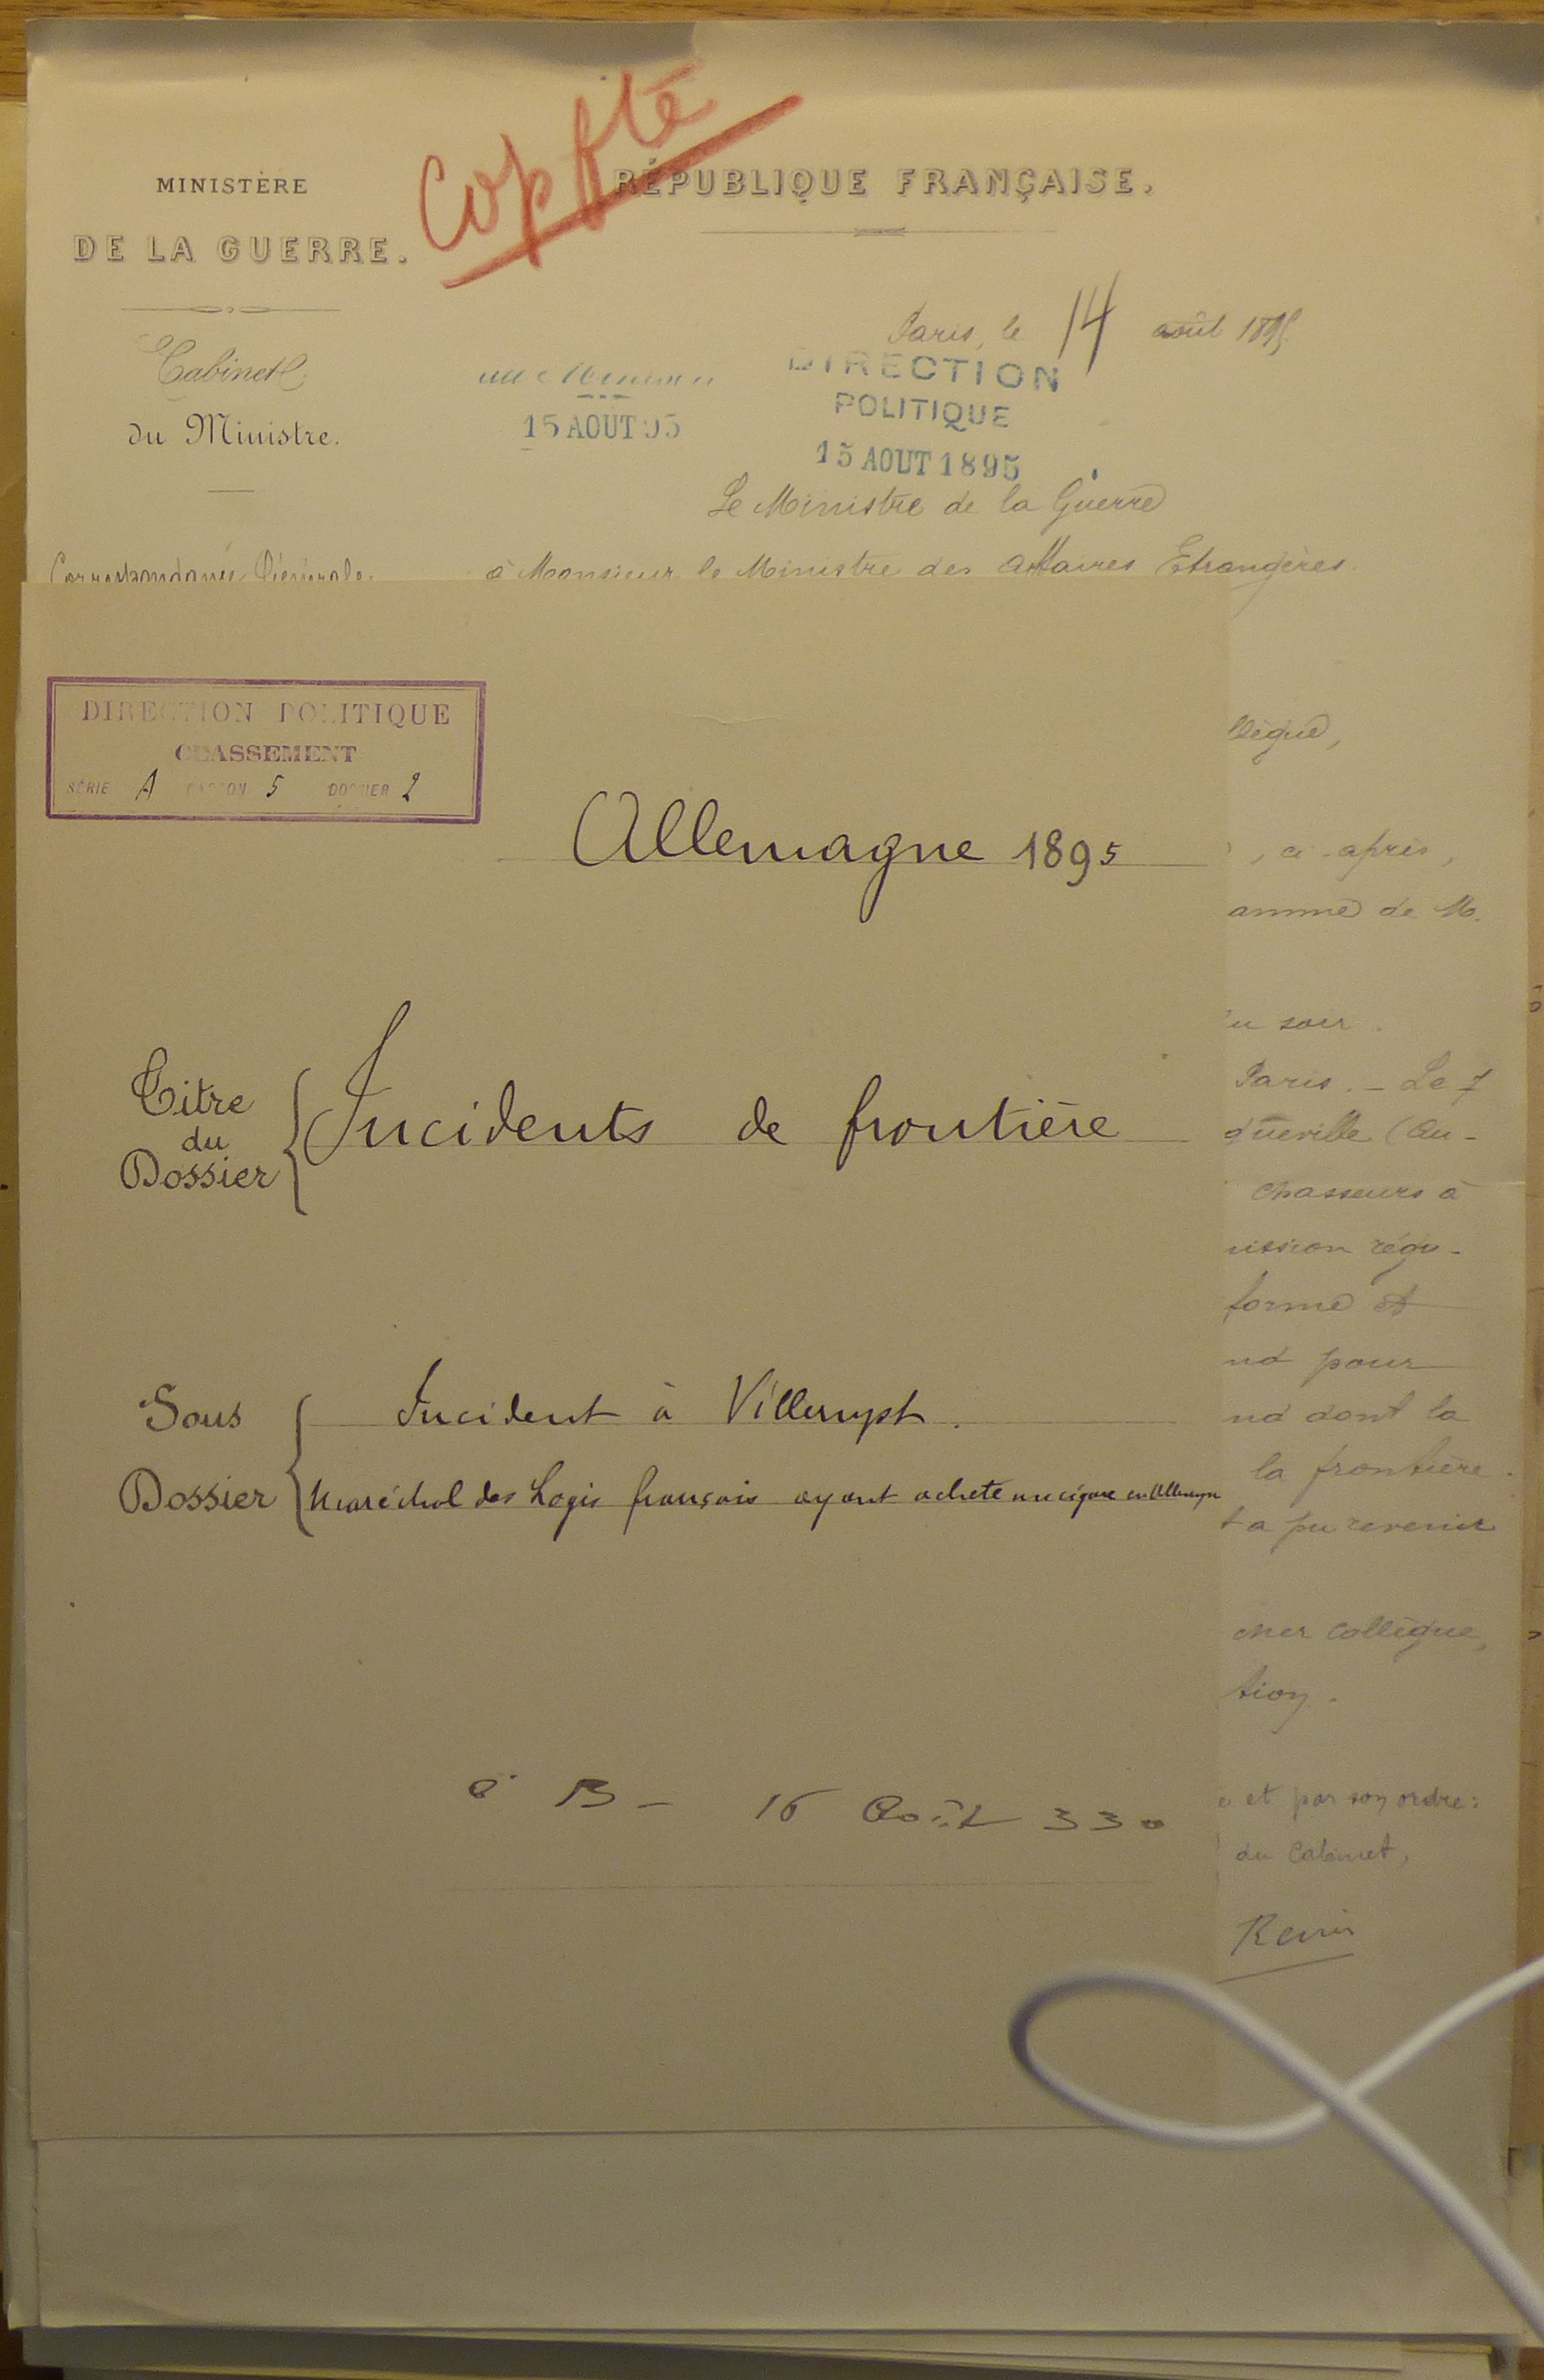 Cop fté
MINISTÈRE
DE LA GUERRE.
RÉPUBLIQUE FRANÇAISE.
Cabinet
du Ministre.
Paris, le 14 août 1895
15 AOUT 95
DIRECTION
POLITIQUE
15 AOUT 1895
Le Ministre de la Guerre
Correspondance Générale.
à Monsieur le Ministre des Affaires Etrangères.
DIRECTION POLITIQUE
CLASSEMENT
SÉRIE A CARTON 5 DOSSIER 2
Allemagne 1895
Titre
du
Dossier
Incidents de frontière
Sous
Dossier
Incident à Villerupt.
Maréchal des Logis français ayant acheté un cigare en Allemagne
B - 16 Août 330
llègue,
, ci-après,
amme de M.
u soir.
Paris. - Le 7
queville (au-
chasseurs à
ission régu-
forme et
nd pour
nd dont la
la frontière.
t a pu revenir
cher collègue,
tion.
et par son ordre:
du Cabinet,